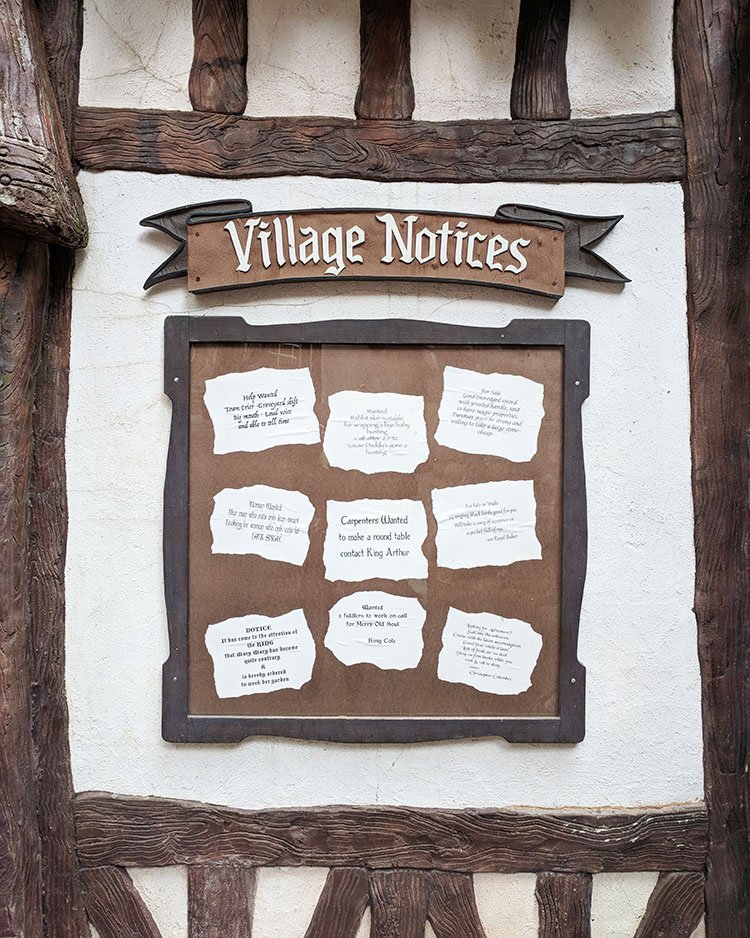 Village Notices
Help Wanted
Town Crier - Graveyard shift
Big mouth - Loud voice
and able to tell time
Wanted
Rabbit skin suitable
for wrapping a bye baby
bunting
Call after 6 P.M.
'cause Daddy's gone a
hunting
For Sale
Good twoedged sword
with jeweled handle, said
to have magic properties
Purchaser must be strong and
willing to take a large stone
cheap
Woman Wanted
Nice man who eats only lean meat
Looking for woman who only eats fat
JACK SPRAT
Carpenters Wanted
to make a round table
contact King Arthur
For Sale or Trade
singing black birds good for pie,
Will take a song of sixpence or
a pocket full of rye
see Royal Baker
NOTICE
It has come to the attention of
the KING
that Mary Mary has become
quite contrary
&
is hereby ordered
to weed her garden
Wanted
3 fiddlers to work on call
for Merry Old Soul
King Cole
Looking for Adventure?
Sail into the unknown
Cruise with the latest accomodations
Good food while it lasts
Lots of fresh air on deck
Sleep on firm bunks while you
rock & roll to sleep
Christopher Columbus